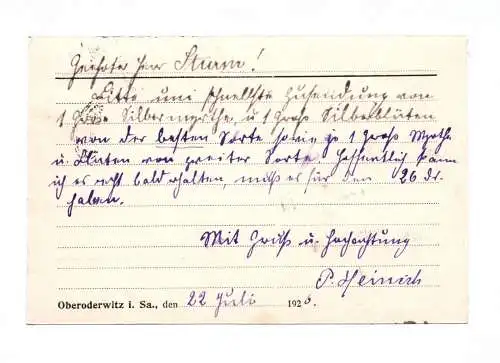 Geehrter Herr Sturm!
Bitte um schnellste Zusendung von
1 Groß Silbermyrthe, u 1 Groß Silberblüten
von der besten Sorte sowie je 1 Groß Myrthe
u. Blüten von zweiter Sorte. Hoffentlich kann
ich es recht bald erhalten, muß es für den 26 dr.
haben.
Mit Gruß u. Hochachtung
P. Heinrich
Oberoderwitz i. Sa., den 22 Juli 1926.